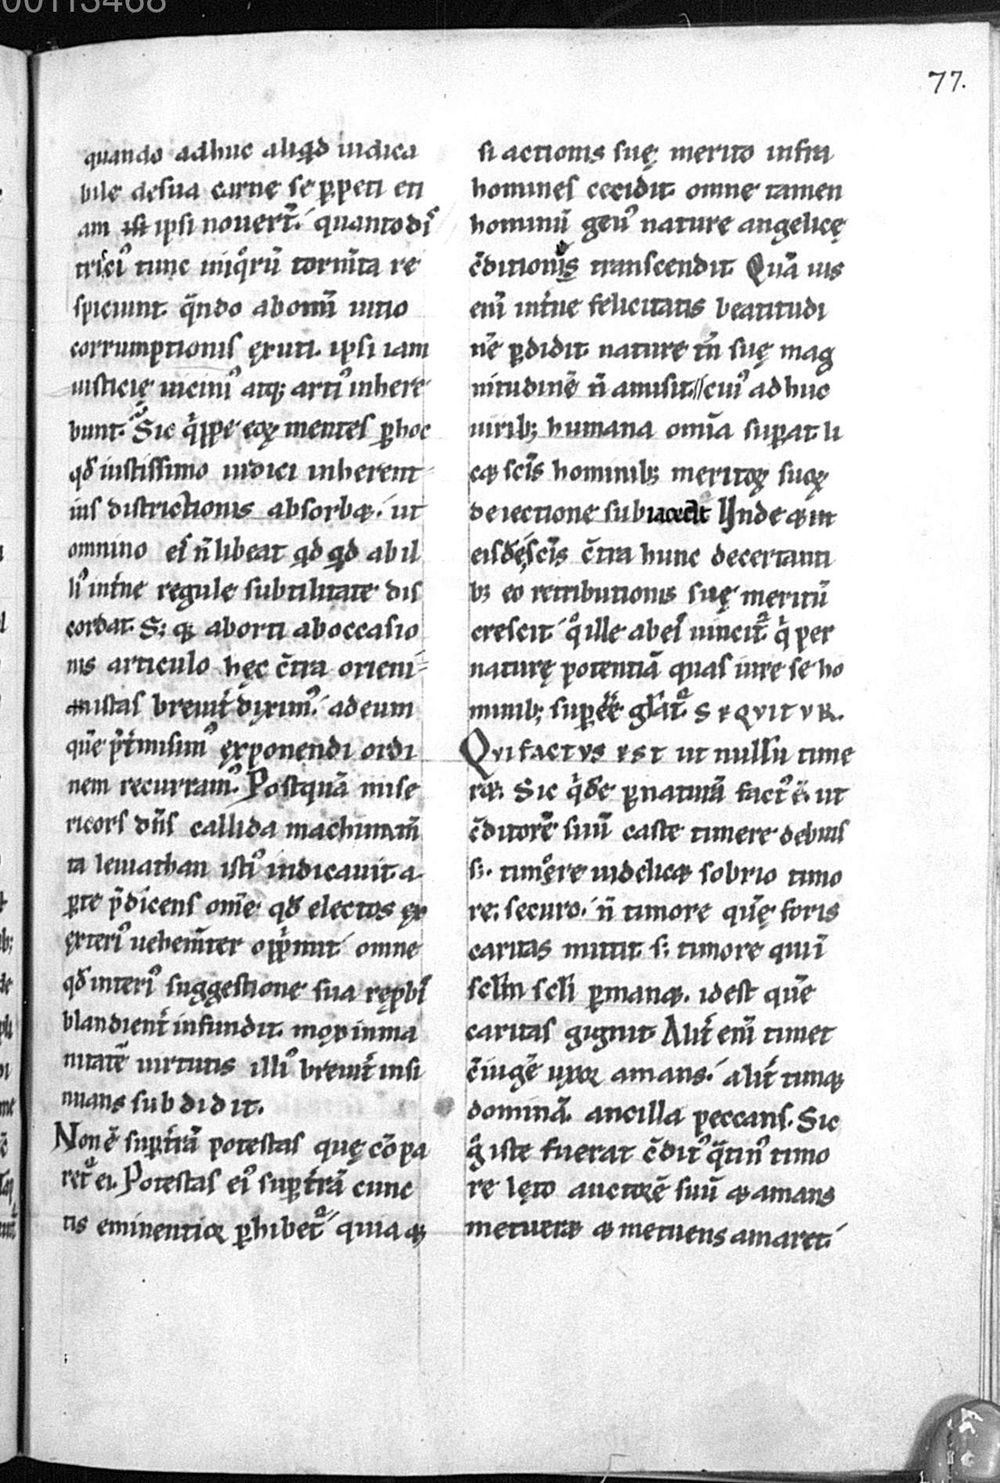 00113468
77.
quando adhuc aliqd iudica
bile desua carne se ꝑpeti eti
am ipsi nouert̄. quanto di
tunc iniq̊rū torm̄ta re
spiciunt. q̄ndo abom̄i uitio
corrumptionis ęxuti. ipsi iam
iusticię uicini᾽ atq; arti᾽ inhere
bunt. Sic q̇ppe eoꝝ mentes ꝑhoc
qđ iustissimo iudici inherent
iiis districtionis absorbꝫ. ut
omnino ei n̄ libeat qd qd ab il
li᾽ int̄ne regule subtilitate dis
cordat. S; qꝫ aborti aboccasio
nis articulo hęc c̄tra origeni
anistas breuit̄ dixim᾽. ad eum
quē p̄t̄misim᾽ ęxponendi ordi
nem recurram᾽. Postquā mise
ricors dn̄s callida machinam̄
ta leuiathan isti᾽ indicauit a
ꝑte p̄dicens om̄e qđ electos ęx
ęxteri᾽ uehem̄ter opp̄mit᾽ omne
qđ interi᾽ suggestione sua repbi᾽
blandient̄ infundit. mox inma
nitatē uirtutis illi᾽ breuit̄ insi
nuans subdidit.
Non ē suꝑt̄rā potestas quę cōpa
ret᾽ ei. Potestas ei᾽ suꝑt̄rā cunc
tis eminentior ꝑhibet᾽ quia ꝫ
si actionis suę merito infra
homines cecidit. omne tamen
hominū gen᾽ nature angelicę
c̄ditionis transcendit. Quā uis
enī int̄ne felicitatis beatitudi
nē ꝑdidit. nature tn̄ suę mag
nitudinē n̄ amisit. cui᾽ adhuc
uirib; humana om̄ia suꝑat li
cꝫ sc̄is hominib; meritoꝝ suoꝝ
deiectione subiacedt Unde ꝫ in
c̄tra hunc decertanti
b; eo retributionis suę meritū
crescit q̊ ille abeis uincit᾽ q̇ per
naturę potentiā quasi iure se ho
minib; suꝑ ēē gl̄at᾽. SEQVITVR.
Qui factvs est ut nullū time
rꝫ. Sic q̇de ꝑ naturā fact᾽ ē. ut
c̄ditorē suū caste timere debuis
s;. timere uidelicꝫ sobrio timo
re. securo. n̄ timore quē foris
caritas mittit. s; timore qui ī
scl̄m scl̄i ꝑmanꝫ. idest quē
caritas gignit. Alit̄ enī timet
c̄iugē uxor amans. alit̄ timꝫ
dominā ancilla peccans. Sic
g̊ iste fuerat c̄dit᾽ q̄tin᾽ timo
re lęto auctorē suū ꝫ amans
metuerꝫ ꝫ metuens amaret.